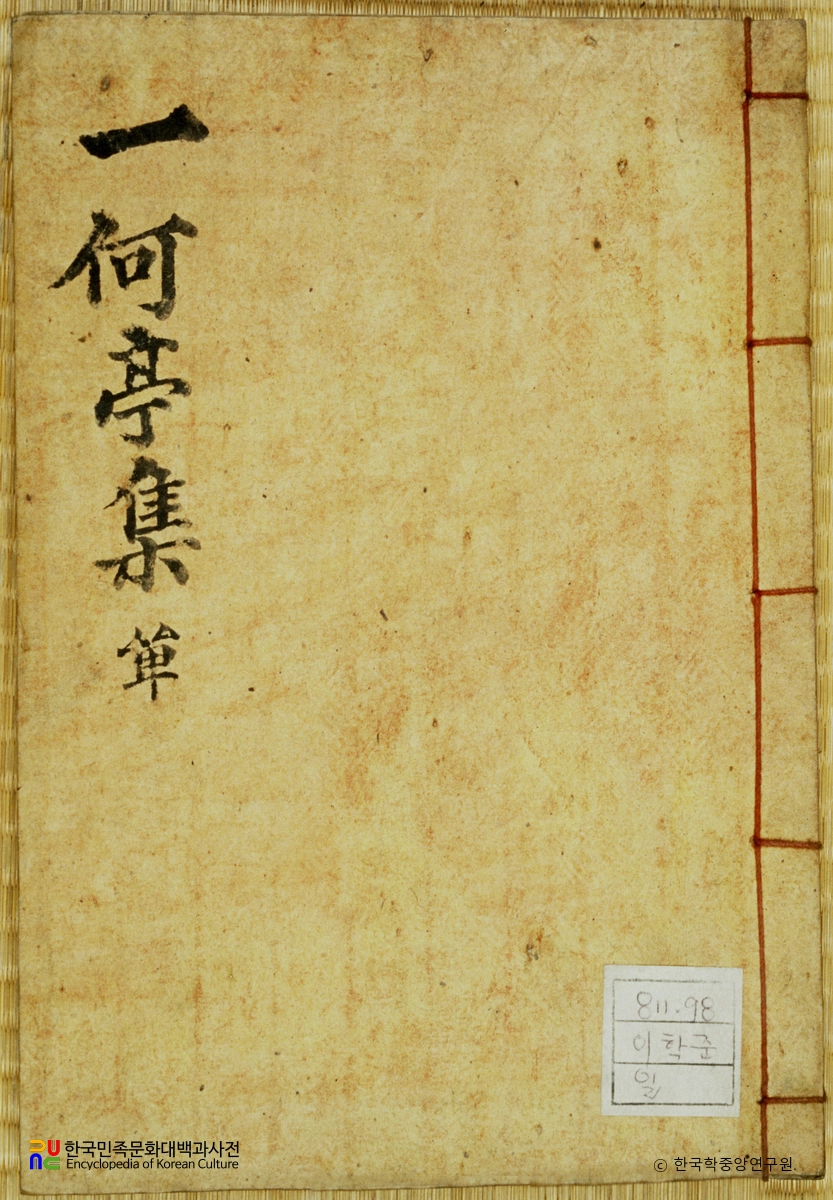 一何亭集 單
811.98
이학준
일
한국민족문화대백과사전
Encyclopedia of Korean Culture
ⓒ 한국학중앙연구원.